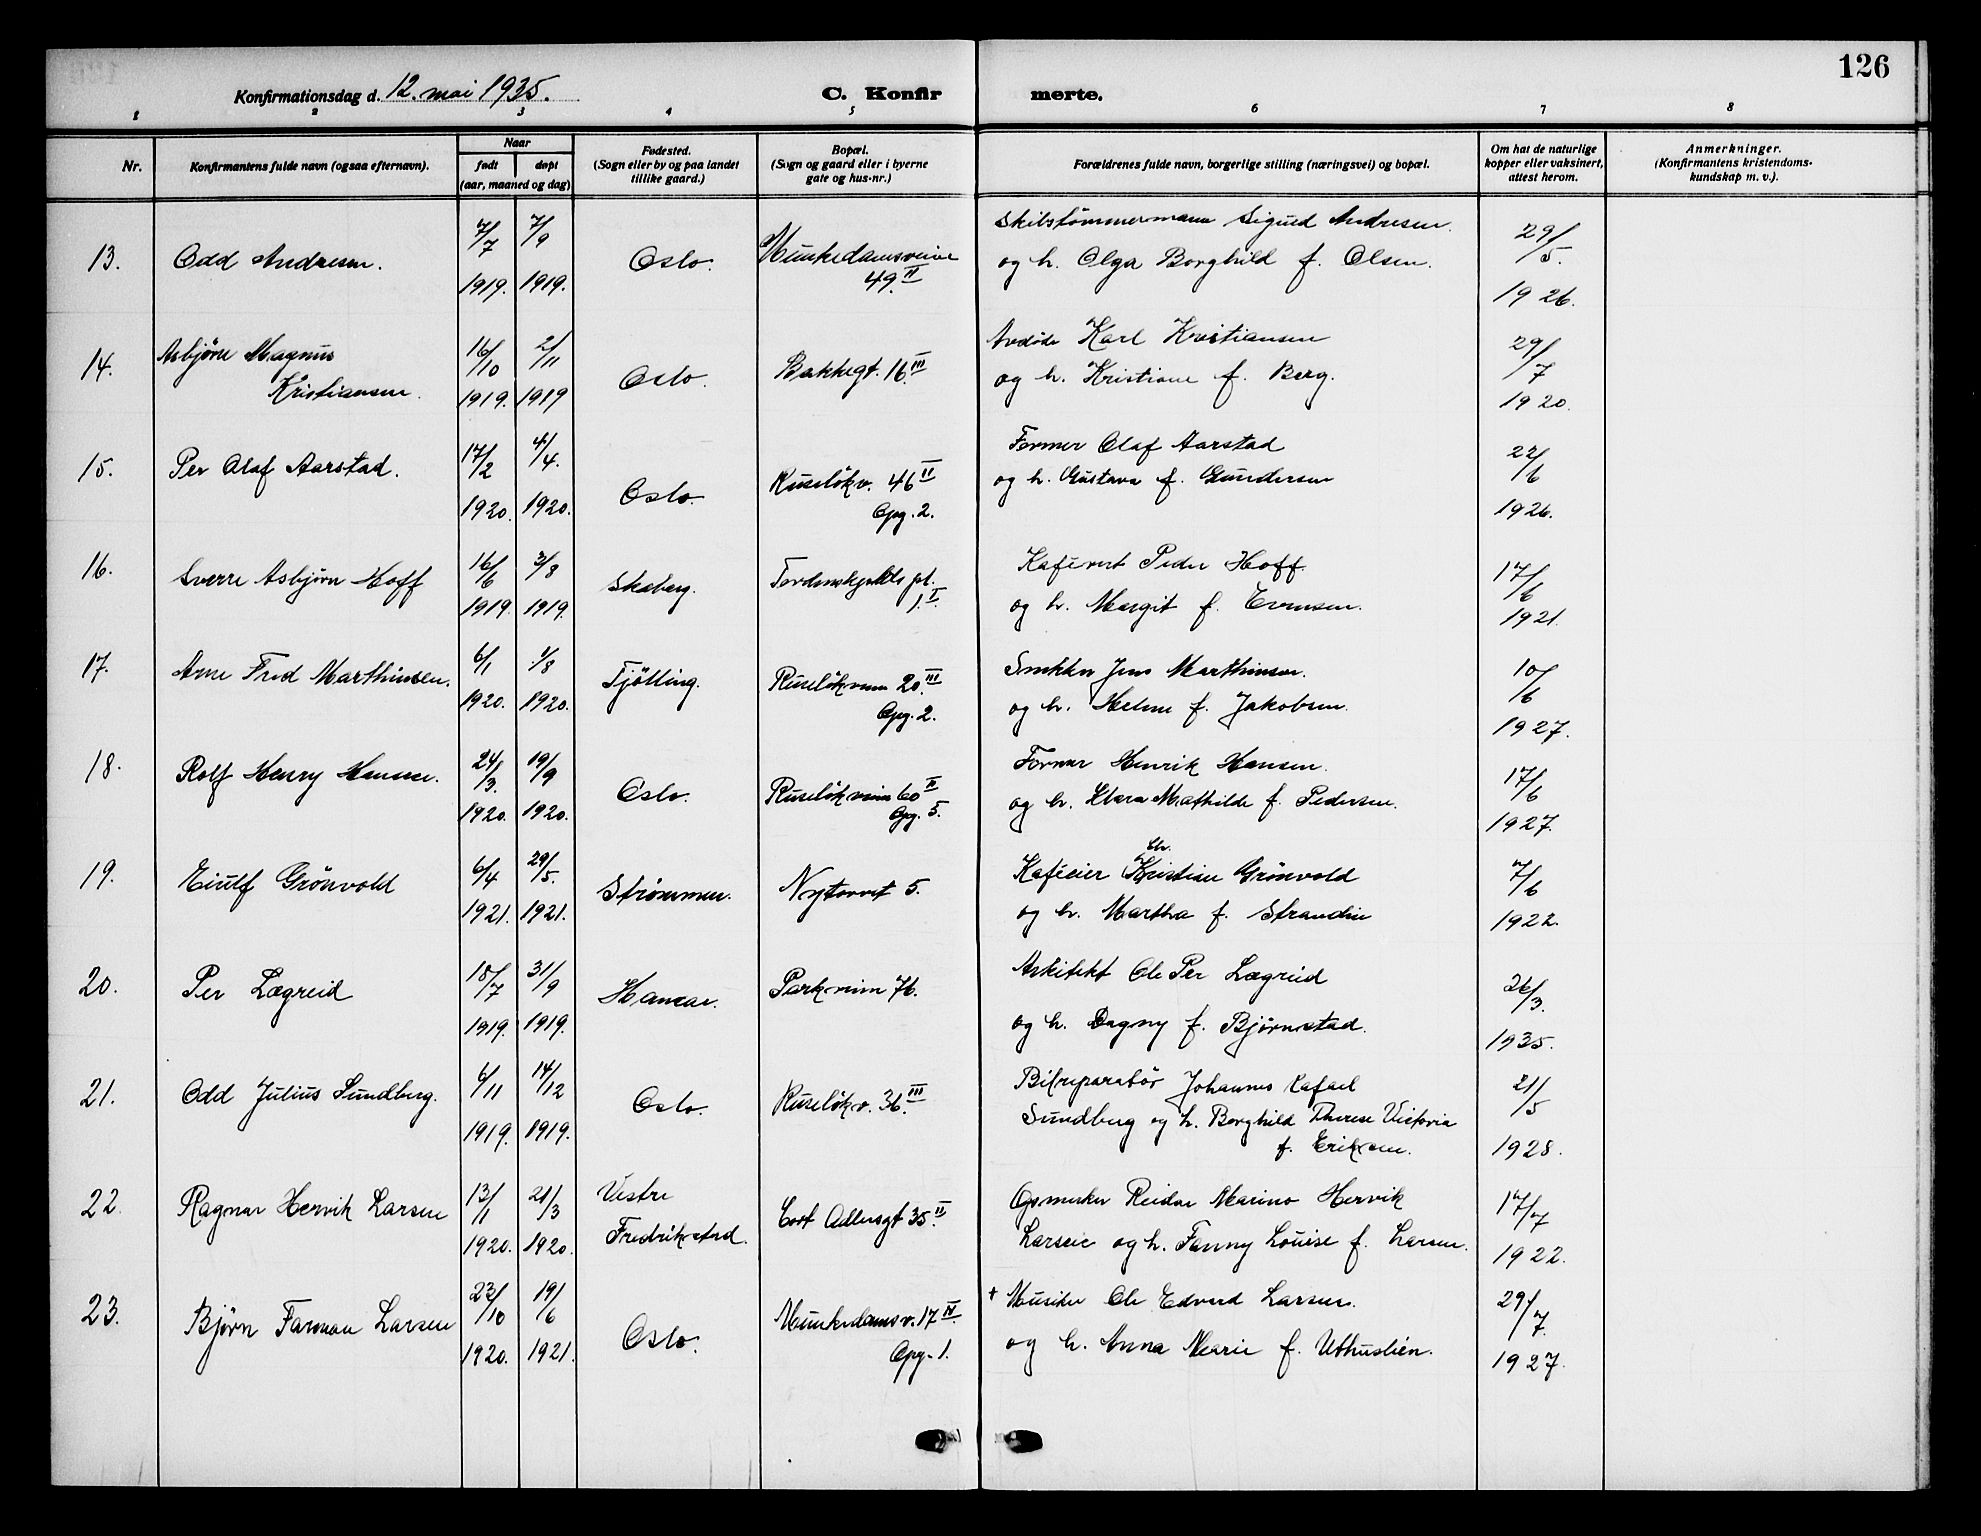 126
Konfirmationsdag d. 12. mai 1935.
C. Konfir merte.
1 2 3 4 5 6 7 8
Nr.
Konfirmantens fulde navn (ogsaa efternavn).
Naar
født døpt
(aar, maaned og dag)
Fødested.
(Sogn eller by og paa landet
tillike gaard.)
Bopæl.
(Sogn og gaard eller i byerne
gate og hus-nr.)
Forældrenes fulde navn, borgerlige stilling (næringsvei) og bopæl.
Om hat de naturlige
kopper eller vaksinert,
attest herom.
Anmerkninger.
(Konfirmantens kristendoms-
kundskap m. v.).
13. Odd Andresen. 7/7 1919. 7/9 1919. Oslo. Munkedamsveien
49.II
Skibstømmermann Sigurd Andresen
og h. Olga Borghild f. Olsen.
29/5. 1926.
14. Asbjørn Magnus
Kristiansen.
16/10 1919. 2/11 1919 Oslo. Bakkegt. 16.III
Avdøde Karl Kristiansen
og h. Kristiane f. Berg.
29/7 1920.
15. Per Olaf Aarstad. 17/2 1920. 4/4. 1920. Oslo. Ruseløkv. 46 II
Opg. 2.
Former Olaf Aarstad
og h. Gustava f. Gundersen
22/6 1926.
16. Sverre Asbjørn Hoff 16/6 1919. 3/8 1919. Skoberg. Tordenskjolds pl.
1.II
Kafévert Peder Hoff.
og h. Margit f. Evensen.
17/6 1921.
17. Arne Fred Marthinsen. 6/1 1920. 1/8 1920. Tjølling. Ruseløkveien 20.III
Opg. 2.
Snekker Jens Marthinsen.
og h. Helene f. Jakobsen.
10/6 1927.
18. Rolf Henry Hansen. 24/3. 1920. 19/9 1920. Oslo. Ruseløkveien 60 II
Opg. 5.
Former Henrik Hansen.
og h. Klara Mathilde f. Pedersen.
17/6 1927.
19. Eiulf Grönvold 6/4 1921. 29/5. 1921. Strømmen. Nytorvet 5.
Chr.
Kaféeier Kristian Grönvold
og h. Martha f. Strandin
7/6 1922.
20. Per Lægreid 18/7 1919. 31/9 1919. Hamar. Parkveien 76.
Arkitekt Ole Per Lægreid
og h. Dagny f. Bjørnstad.
26/3. 1935.
21. Odd Julius Sundberg. 6/11 1919. 14/12 1919. Oslo. Ruseløkv. 36.III
Bilreparatör Johannes Rafael
Sundberg og h. Borghild Therese Victoria
f. Eriksen.
21/5 1928.
22. Ragnar Hervik Larsen 13/1 1920. 21/3 1920. Vestre
Fredrikstad. Cort Adlersgt 35.II
Reidar Marino Hervik
Larsen og h. Fanny Louise f. Larsen.
17/7 1922.
23. Bjørn Farman Larsen 23/10 1920. 19/6 1921. Oslo. Munkedamsv. 17 IV.
Opg. 1.
+ Musiker Ole Edvard Larsen.
og h. Anna Marie f. Uthuslien.
29/7. 1927.